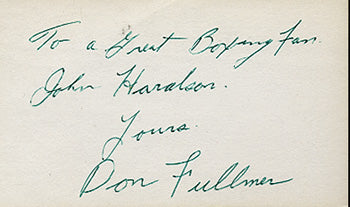 To a Great Boxing Fan.
John Haralson.
Yours.
Don Fullmer